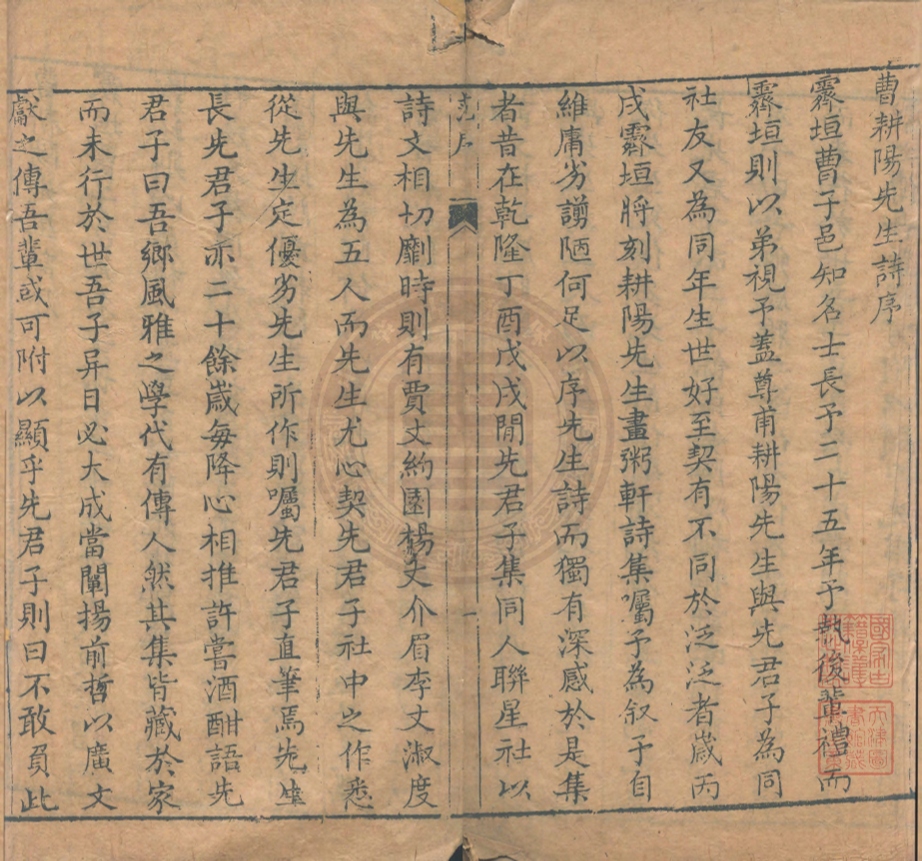 曹耕陽先生詩序
霽垣曹子邑知名士長予二十五年予執後輩禮而
霽垣則以弟視予蓋尊甫耕陽先生與先君子為同
社友又為同年生世好至契有不同於泛泛者歲丙
戌霽垣將刻耕陽先生畫粥軒詩集囑予為叙予自
維庸劣謭陋何足以序先生詩而獨有深感於是集
者昔在乾隆丁酉戊戌閒先君子集同人聯星社以
詩文相切劘時則有賈丈約園楊丈介眉李丈淑度
與先生為五人而先生尤心契先君子社中之作悉
從先生定優劣先生所作則囑先君子直筆焉先生
長先君子亦二十餘歲每降心相推許嘗酒酣語先
君子曰吾鄉風雅之學代有傳人然其集皆藏於家
而未行於世吾子异日必大成當闡揚前哲以廣文
獻之傳吾輩或可附以顯乎先君子則曰不敢負此